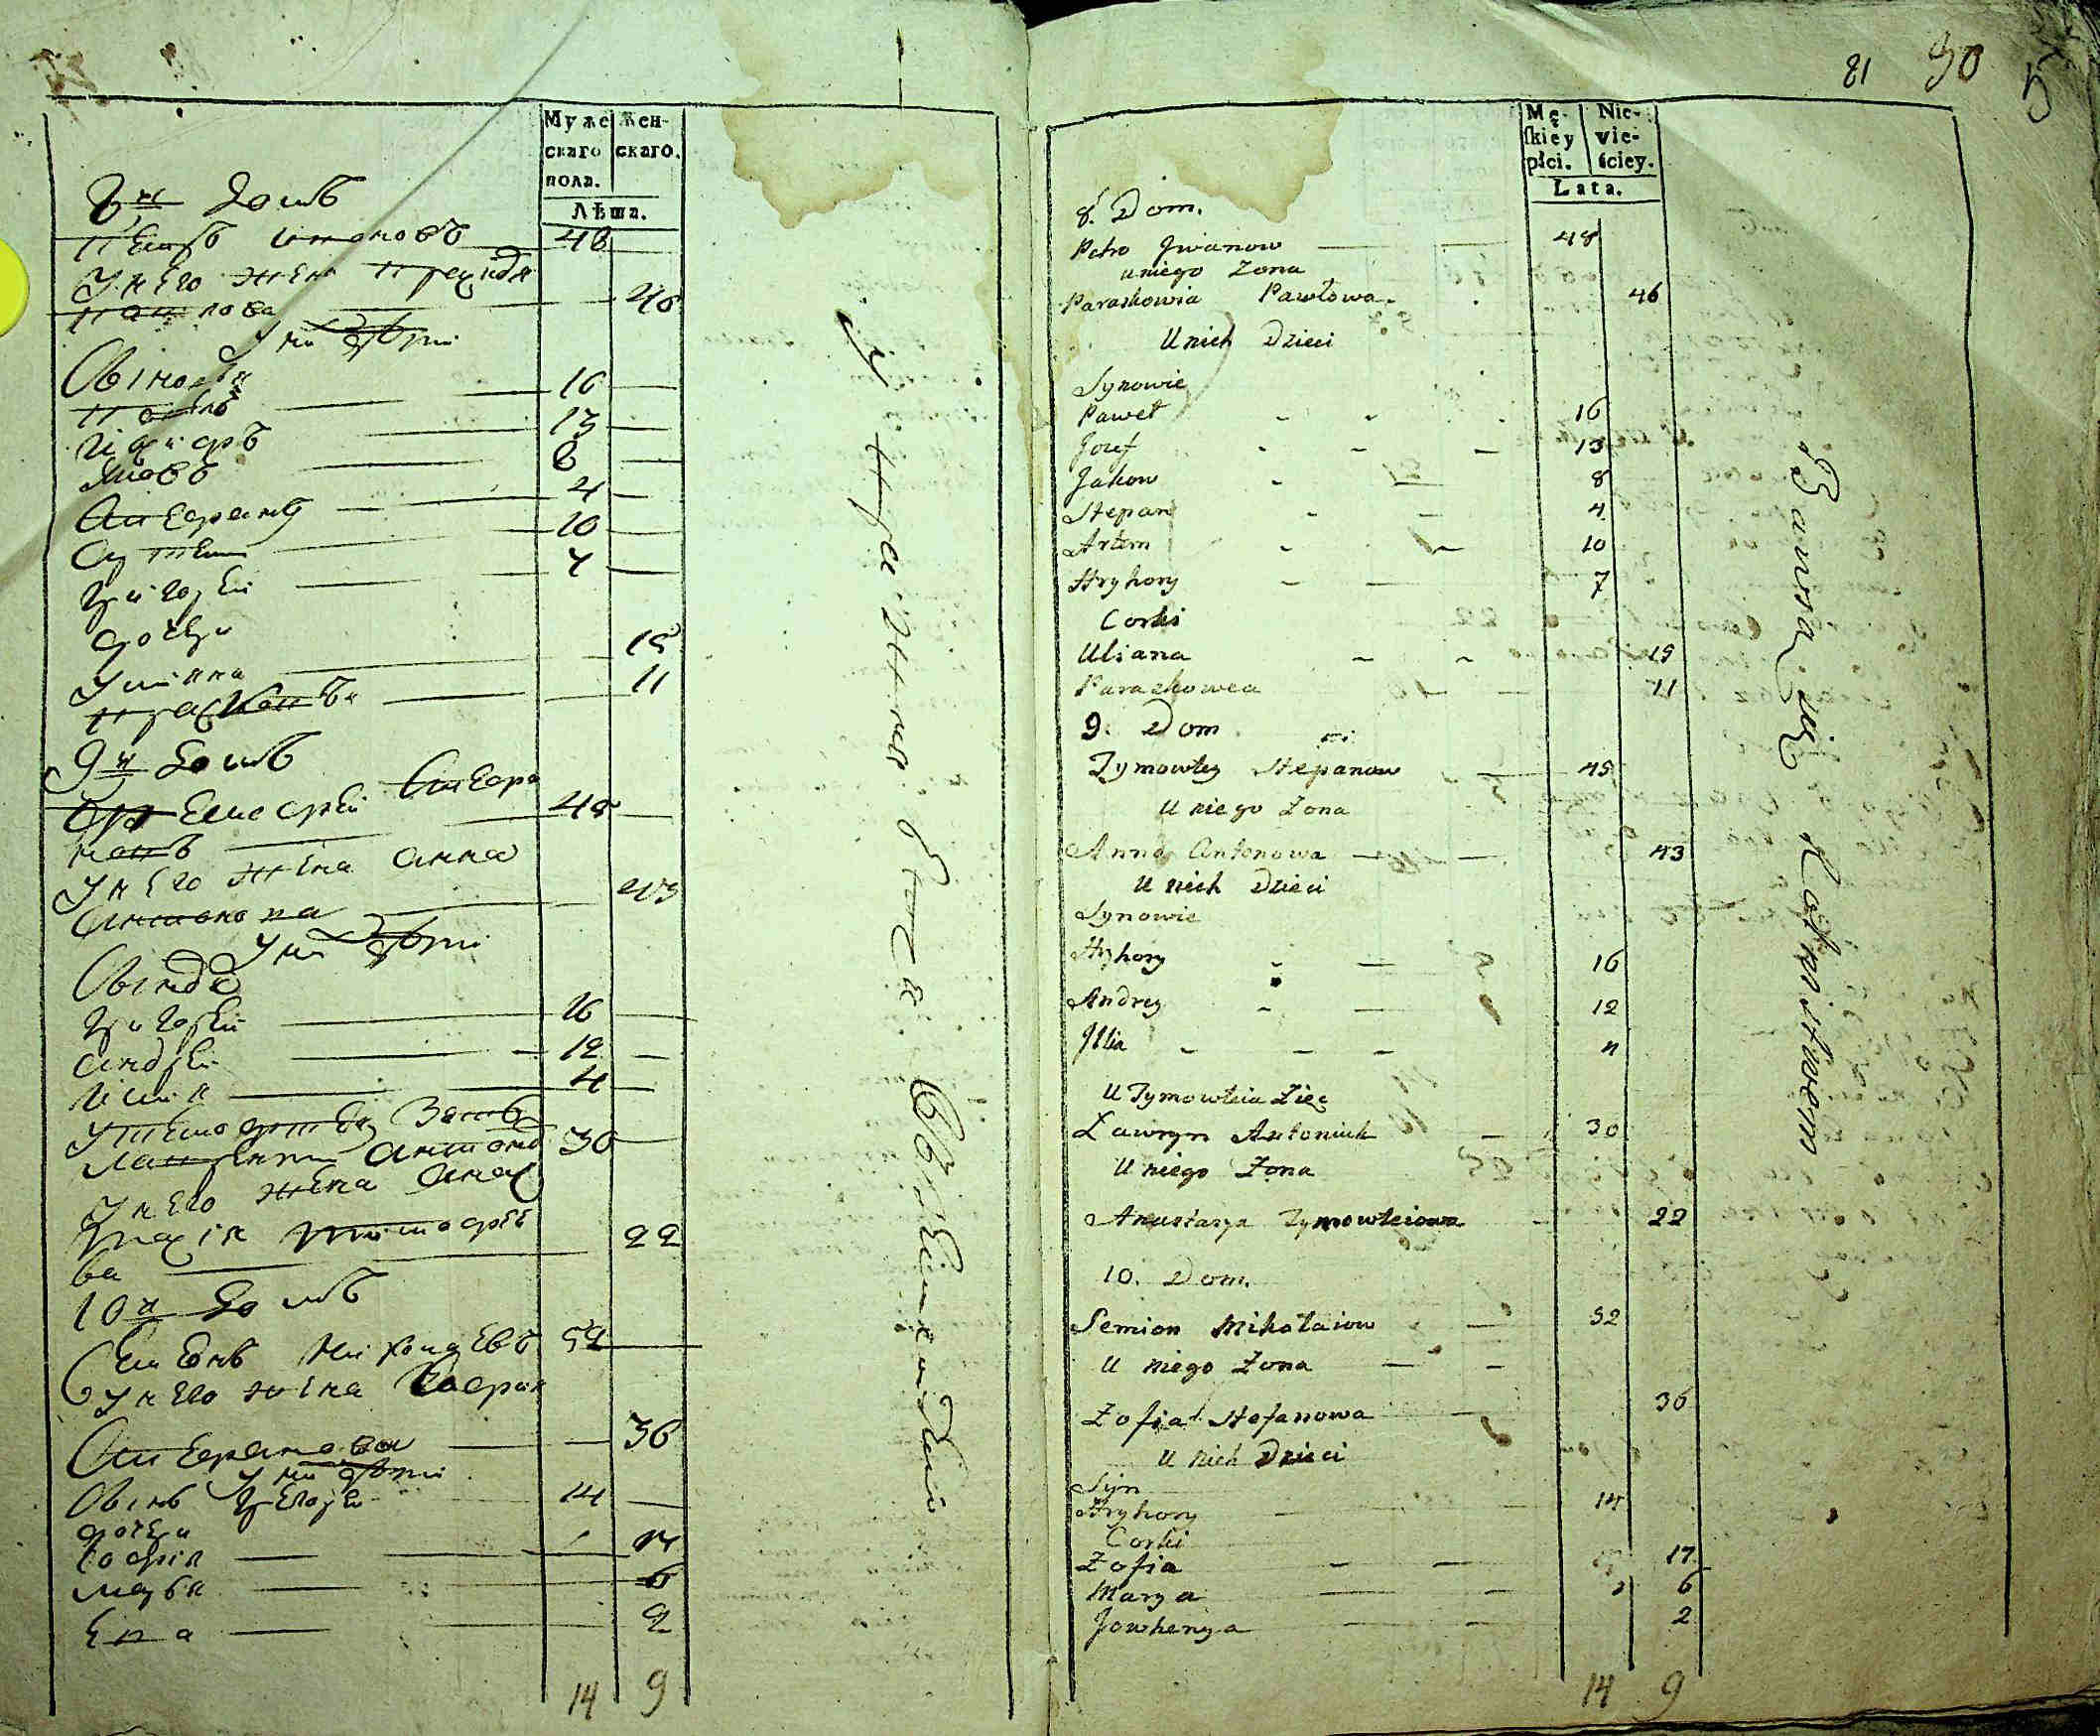 Муже
скаго
пола.
Жен-
скаго.
Лѣта.
8й домъ
Петръ Ивановъ 48
У него жена
Павлова 46
У ни дѣти
Сыновя
Павелъ 16
Иосифъ 13
Яковъ 8
Стефанъ 4
Артем 10
Григорей 7
дочери
Улиана 15
Прасковья 11
9й домъ
Тимофей Стефа
новъ 45
У него жена Анна
Антонова 43
У ни дѣти
Сынове
Григорей 16
Андрей 12
Илия 4
У Тимофея Зять
Лаврентий Антоновъ 30
У него жена Анас
тасия Тимофее
ва 22
10й домъ
Семенъ Николаевъ 52
У него жена София
Стефанова 36
У ни дѣти
Сынъ Григорей 14
дочери
София 17
Марья 6
2
14 9
81 90
5
Mę-
ſkiey
płci.
Nie-
vie-
ściey.
Lata.
8. Dom.
Petro Jwanow 48
uniego Zona
Paraskowia Pawłowa 46
U nich Dzieci
Synowie
Paweł 16
Jozef 13
Jakow 8
Stepan 4
Artem 10
Hryhory 7
Corki
Uliana 15
Paraskowea 11
9. Dom
Tymowtey Stepanow 45
U niego Zona
Anna Antonowa 43
U nich Dzieci
Synowie
Hryhory 16
Andrey 12
Jllia 4
U Tymowteia Zięc
Ławryn Antoniuk 30
U niego Zona
Anastazya Tymowteiowa 22
10. Dom.
Semion Mikołaiow 52
U niego Zona
Zofia Stefanowa 36
U nich Dzieci
Syn
Hryhory 14
Corki
Zofia 17
Marya 6
Jowhenya 2
14 9